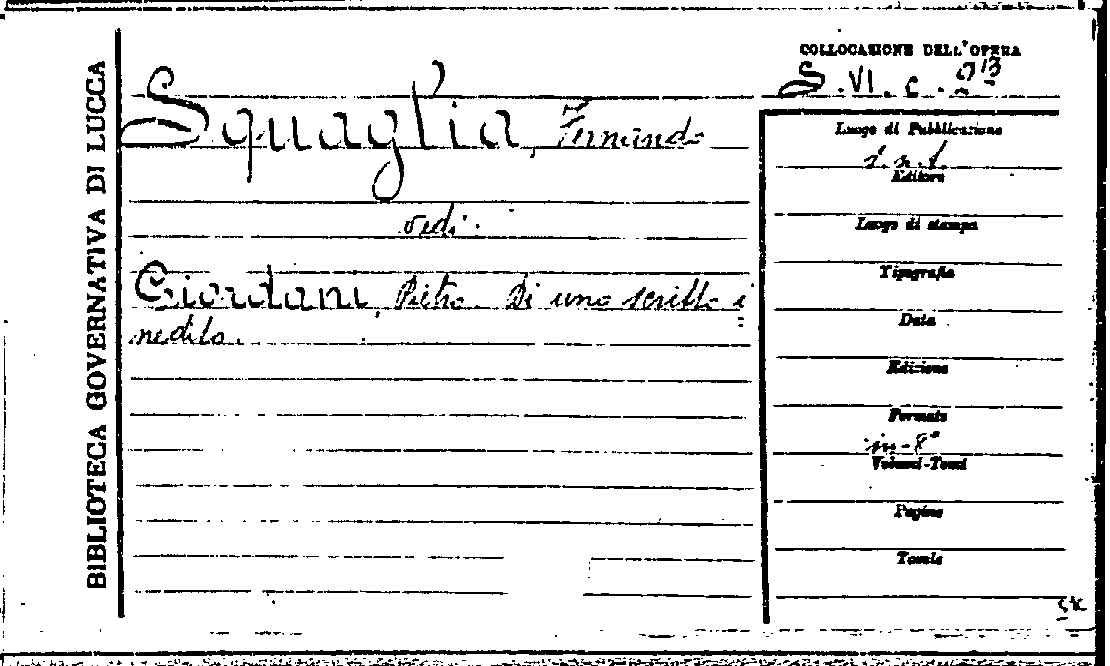 BIBLIOTECA GOVERNATIVA DI LUCCA
COLLOCAZIONE DELL'OPERA
S. VI. c. 213
Squaglia, Fernando
vedi:
Giordani, Pietro. Di uno scritto i=
nedito.
Luogo di Pubblicazione
s. n. t.
Editore
Luogo di stampa
Tipografia
Data
Edizione
Formato
in-8°
Volumi-Tomi
Pagine
Tavole